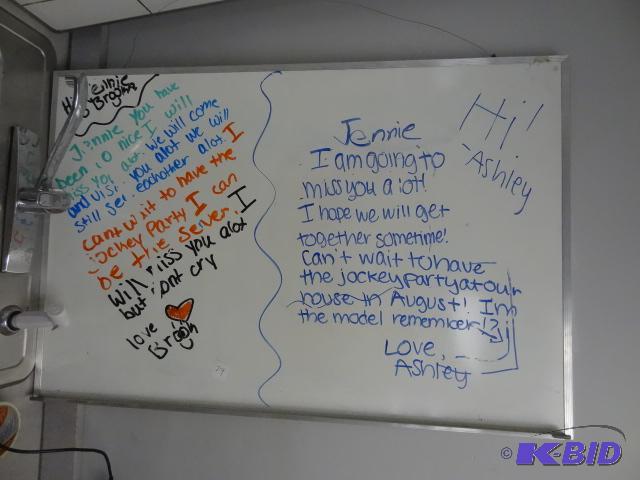 Hi Jennie
Brooke
Jennie you have
been so nice I will
miss you alot. we will come
and visit you alot we will
still see eachother alot. I
cant wait to have the
jockey Party I can
be the server. I
will miss you alot
but dont cry
love
Brook
Jennie
I am going to
miss you a lot!
I hope we will get
together sometime!
Can't wait to have
the jockey party at our
house in August! Im
the model remember!?
LOVE,
Ashley
Hi!
-Ashley
© K-BID